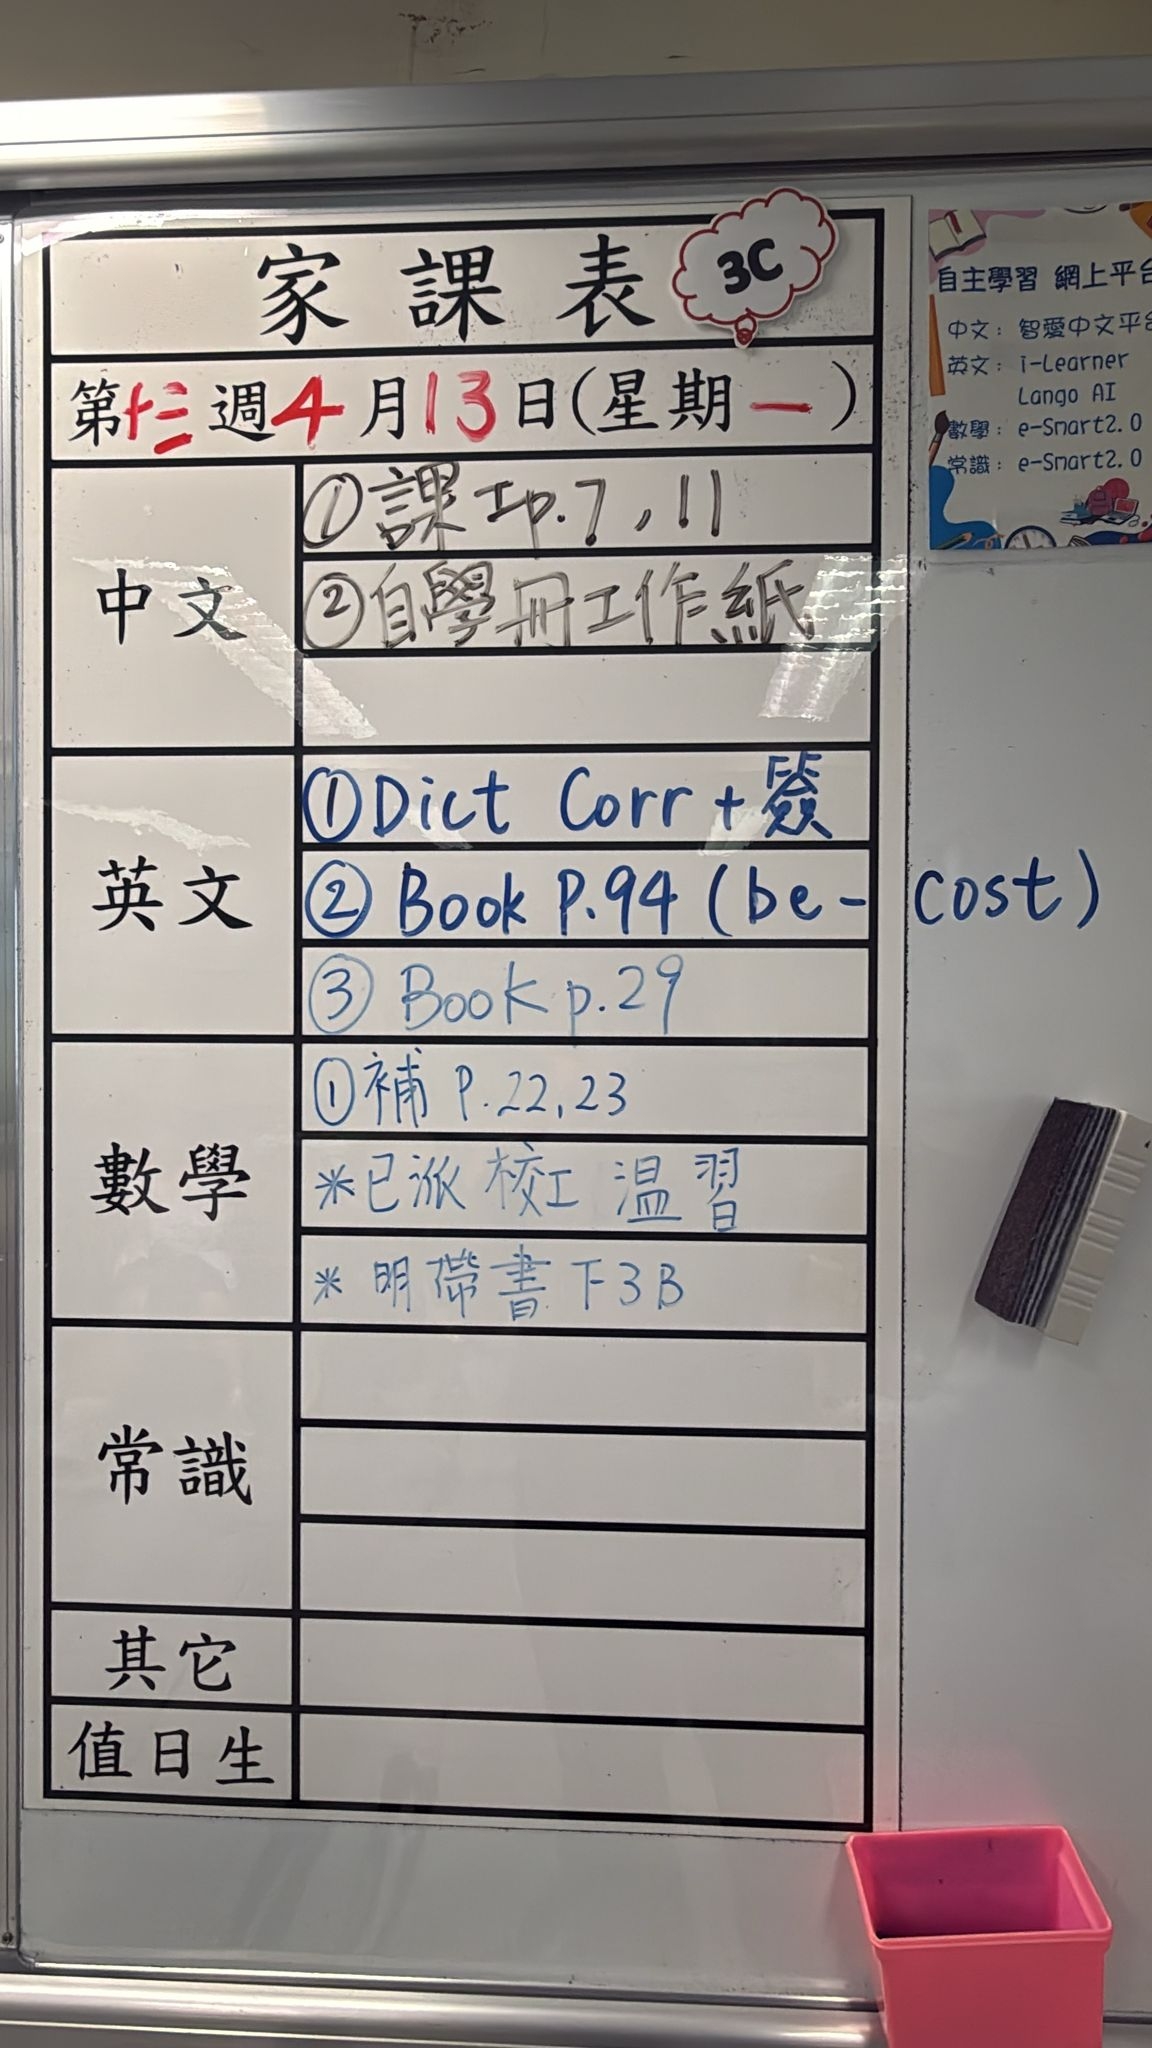 家課表
3C
第十三週4月13日(星期一)
中文
①課工p.7,11
②自學冊工作紙
英文
①Dict Corr+簽
②Book P.94 (be-cost)
③Book p.29
數學
①補 P.22,23
*已派校工 温習
*明帶書下3B
常識
其它
值日生
自主學習 網上平台
中文：智愛中文平台
英文：i-Learner
Lango AI
數學：e-Smart2.0
常識：e-Smart2.0